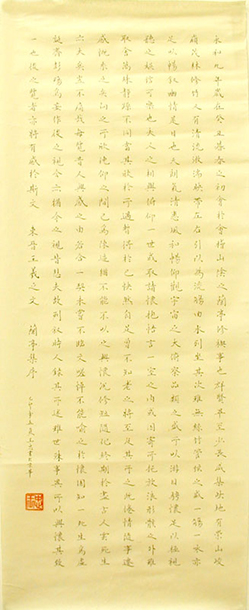 永和九年歲在癸丑暮春之初會於會稽山陰之蘭亭修禊事也群賢畢至少長咸集此地有崇山峻
嶺茂林修竹又有清流激湍映帶左右引以為流觴曲水列坐其次雖無絲竹管弦之盛一觴一詠亦
足以暢敘幽情是日也天朗氣清惠風和暢仰觀宇宙之大俯察品類之盛所以遊目騁懷足以極視
聽之娛信可樂也夫人之相與俯仰一世或取諸懷抱悟言一室之內或因寄所託放浪形骸之外雖
取舍萬殊靜躁不同當其欣於所遇暫得於己快然自足曾不知老之將至及其所之既倦情隨事遷
感慨係之矣向之所欣俛仰之間已為陳迹猶不能不以之興懷況修短隨化終期於盡古人云死生
亦大矣豈不痛哉每覽昔人興感之由若合一契未嘗不臨文嗟悼不能喻之於懷固知一死生為虛
誕齊彭殤為妄作後之視今亦猶今之視昔悲夫故列敘時人錄其所述雖世殊事異所以興懷其致
一也後之覽者亦將有感於斯文 東晉王羲之文 蘭亭集序